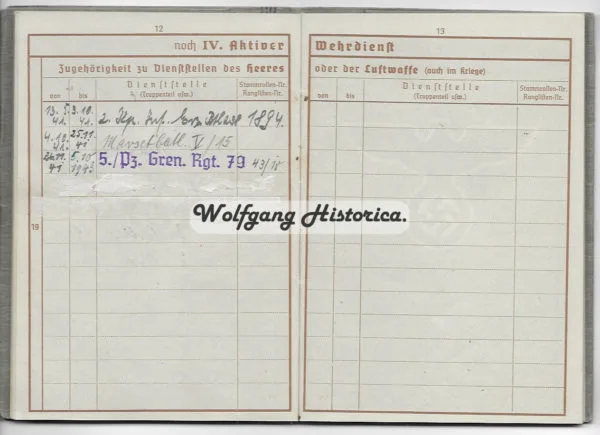 12
noch IV. Aktiver
Zugehörigkeit zu Dienststellen des Heeres
von
bis
Dienststelle
(Truppenteil usw.)
Stammrollen-Nr.
Ranglisten-Nr.
13. 5.
41.
3.10.
41.
2. Kp. Inf. Ers. Btl. 1894.
4.10.
41.
25.11.
41
Marschbatl. V/15
26.11.
41
5./Pz. Gren. Rgt. 79
43/10
19
Wolfgang Historica.
13
Wehrdienst
oder der Luftwaffe (auch im Kriege)
von
bis
Dienststelle
(Truppenteil usw.)
Stammrollen-Nr.
Ranglisten-Nr.